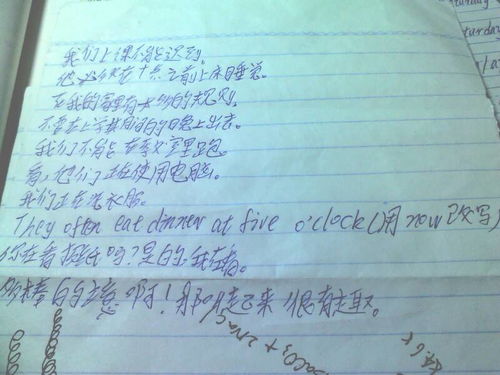 我们上课不能迟到。
他必须在十点之前上床睡觉。
在我的家里有太多的规则。
不要在上学期间的晚上出去。
我们不能在教室里跑。
看,他们正在使用电脑。
我们正在洗衣服。
They often eat dinner at five o'clock(用now改写)
你在看报纸吗?是的,我在看。
多棒的主意啊!那听起来很有趣。
CO3 + 2NaC